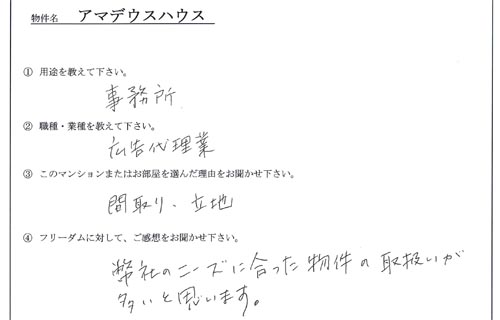 物件名 アマデウスハウス
① 用途を教えて下さい。
事務所
② 職種・業種を教えて下さい。
広告代理業
③ このマンションまたはお部屋を選んだ理由をお聞かせ下さい。
間取り、立地
④ フリーダムに対して、ご感想をお聞かせ下さい。
弊社のニーズに合った物件の取扱いが
多いと思います。